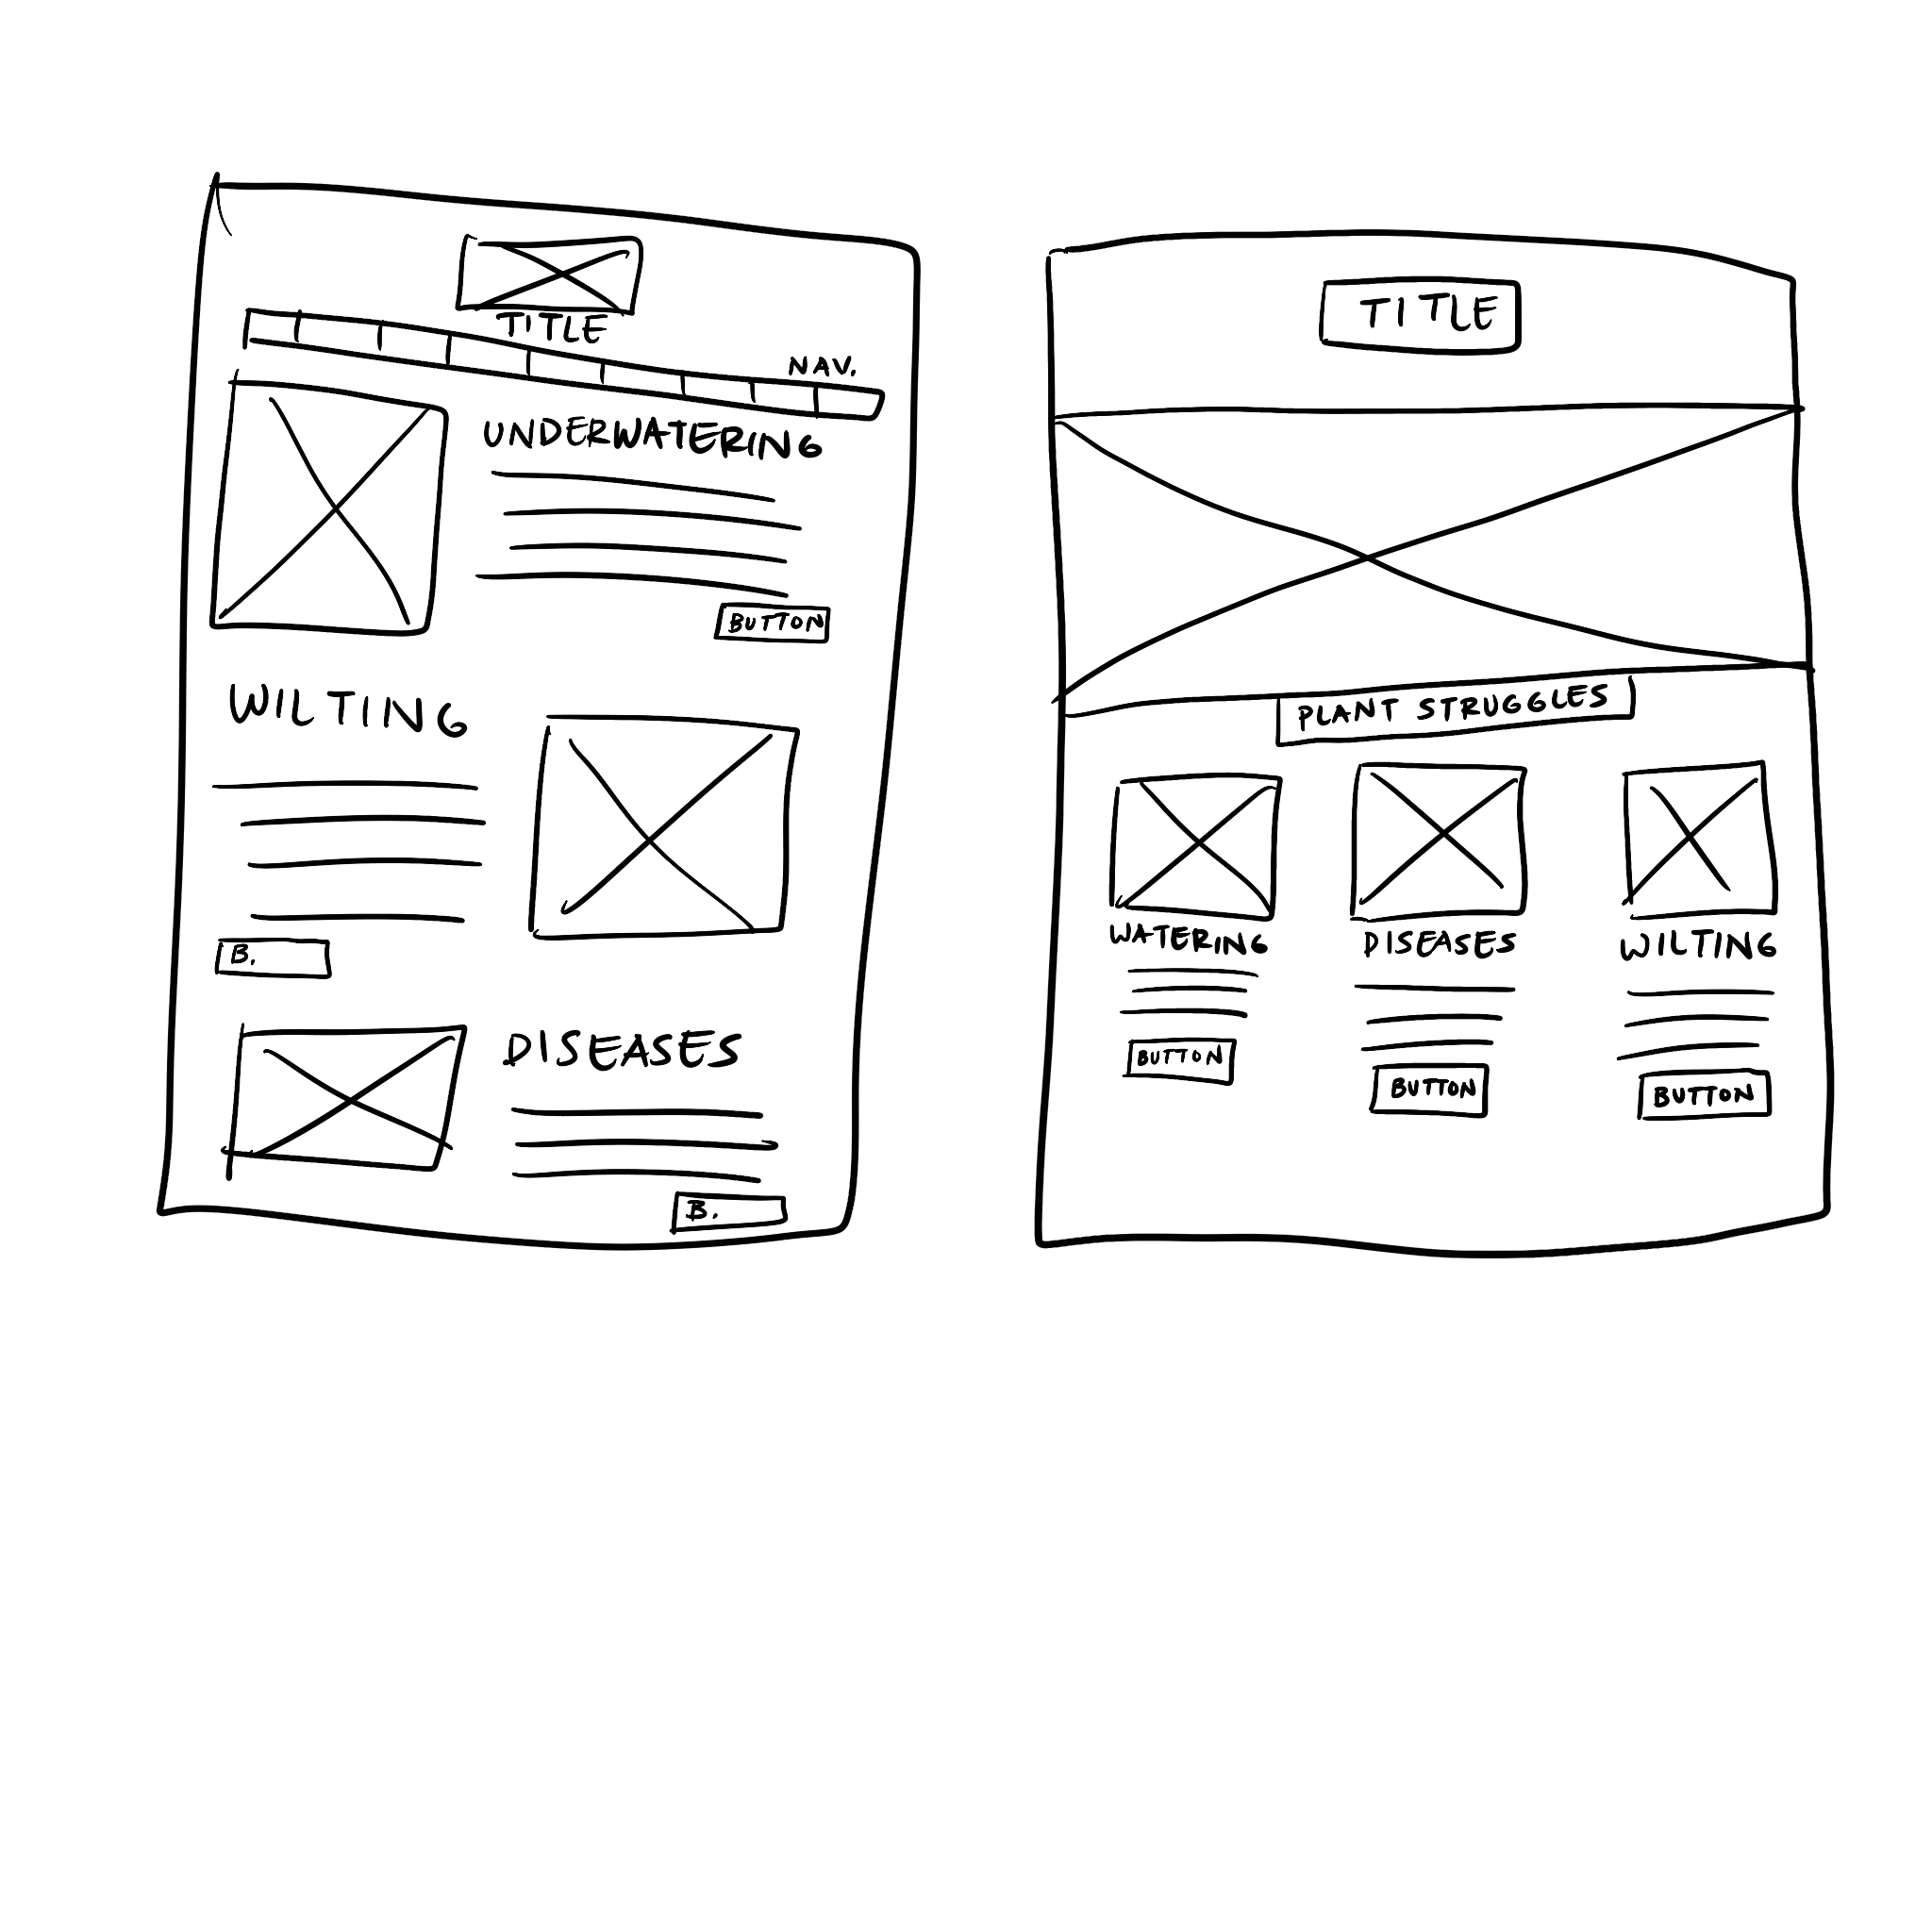 TITLE
NAV.
UNDERWATERING
BUTTON
WILTING
B.
DISEASES
B.
TITLE
PLANT STRUGGLES
WATERING
BUTTON
DISEASES
BUTTON
WILTING
BUTTON